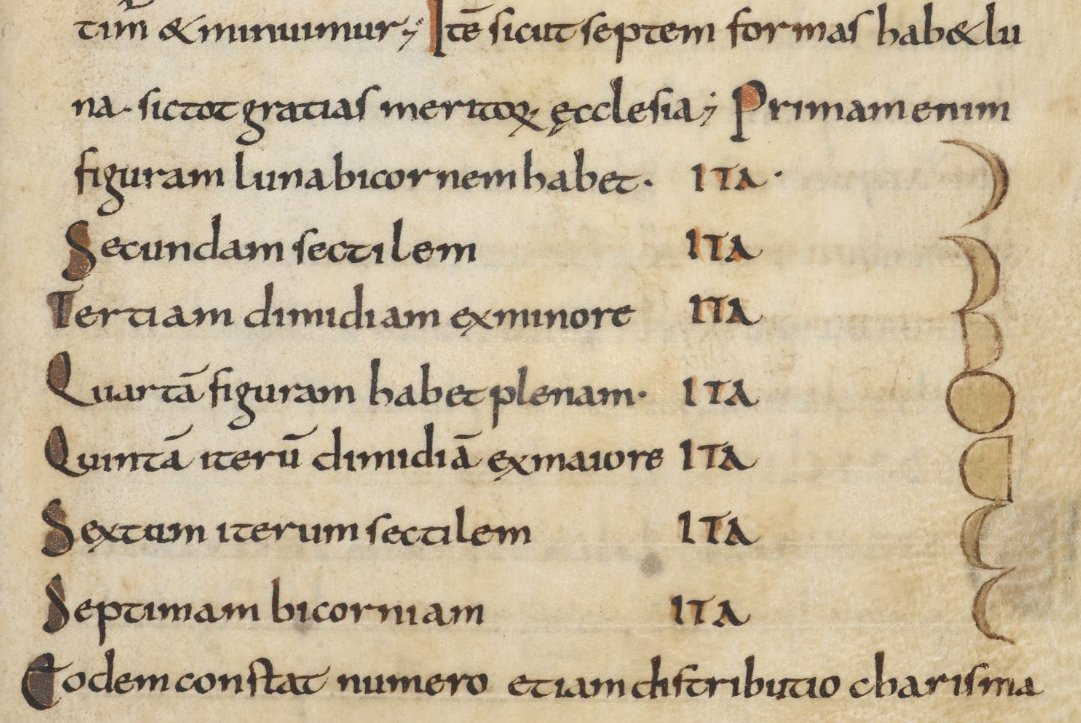 tim̄ & minuimur; Itē sicut septem formas hab& lu
na· sic tot gratias meritoꝝ ęcclesia; Primam enim
figuram luna bicornem habet· ITA·
Secundam sectilem ITA
Tertiam dimidiam ex minore ITA
Quartā figuram habet plenam· ITA
Quintā iterū dimidiā ex maiore ITA
Sextam iterum sectilem ITA
Septimam bicorniam ITA
Eodem constat numero etiam distributio charisma